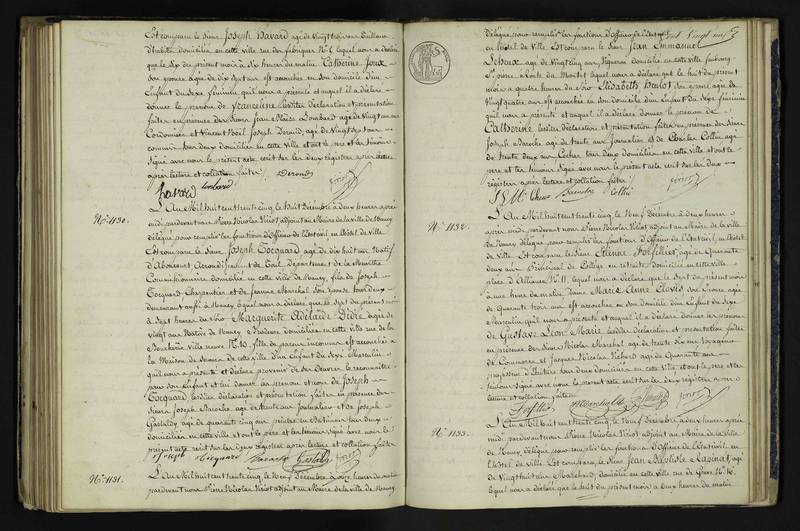 Est comparu le Sieur Joseph Havard agé de Vingt trois ans Tailleur
d'habits domicilié en cette ville rue des fabriques N° 5 lequel nous a declaré
que le Six du présent mois à Six heures du matin Catherine Joux
Son épouse agée de dix sept ans est accouchée en son domicile d'un
Enfant du Sexe féminin qu'il nous a présenté et auquel il a déclaré
donner le prénom de Francoline lesdites déclaration et présentation
faites en présence des Sieurs Jean Alexis Lombard agé de Vingt ans
Cordonnier et Vincent Noël Joseph Derond, agé de Vingt Sept ans
commis tous deux domiciliés en cette Ville et ont le père et les témoins
Signé avec nous le présent acte écrit sur les deux registres après lecture
après lecture et collation faites
Havard Lombard Derond
N° 1130.
L'An Mil huit cent trente cinq, le Huit Décembre à deux heures après
midi pardevant nous Pierre Nicolas Noisot adjoint au Maire de la ville de Nancy
délégué pour remplir les fonctions d'Officier de l'Etat civil, en l'hôtel de Ville
Est comparu le Sieur Joseph Tocquard agé de dix huit ans Natif
d'Aboncourt Arrondissement de Toul, département de la Meurthe
Commissionnaire domicilié en cette ville de Nancy, fils de Joseph
Tocquard Charpentier et de Jeanne Marchal Son épouse tous deux
demeurant lequel nous a déclaré que le Sept du présent mois
à Sept heures du soir Marguerite Adelaïde Didie agée de
vingt ans Native de Nancy Brodeuse domiciliée en cette ville rue de la
Boucherie Ville neuve N° 10. fille de parens inconnus est accouchée à
la Maison de Secours de cette ville d'un Enfant du Sexe Masculin
qu'il nous a présenté et declaré provenir de ses Oeuvres le reconnaître
pour son Enfant et lui donner les prénom et nom de Joseph
Tocquard lesdites déclaration et présentation faites en présence des
Sieurs Joseph Naroche agé de trente ans Journalier et de Joseph
Gastaldy agé de quarante cinq ans peintre en Batiment tous deux
domiciliés en cette ville et ont le père et les témoins Signé avec nous le
présent acte écrit sur les deux registres après lecture et collation faites
Joseph Tocquard Gastaldy
N° 1131.
L'An Mil huit cent trente cinq le Neuf Décembre à heures du matin
pardevant nous Pierre Nicolas Noisot adjoint au Maire de la ville de Nancy
délégué pour remplir les fonctions d'Officier de l'Etat
en l'hôtel de Ville Est comparu le Sieur Jean Emmanuel
agé de Vingt cinq ans domicilié en cette ville faubourg
St pierre lequel nous a déclaré que le huit du présent
mois à quatre heures du soir Elisabeth Hulot Son épouse agée de
Vingt quatre ans est accouchée en son domicile d'un Enfant du Sexe féminin
qu'il nous a présenté et auquel il a déclaré donner le prénom de
Catherine lesdites déclaration et présentation faites en présence des Sieurs
Joseph Naroche agé de trente ans Journalier et de Collin agé
de trente deux ans Cocher tous deux domiciliés en cette ville et ont le
père et les témoins Signé avec nous le présent acte écrit sur les deux
registres après lecture et collation faites
Collin
N° 1132.
L'An Mil huit cent trente cinq le Neuf Décembre à deux heures
après midi pardevant nous Pierre Nicolas Noisot adjoint au Maire de la ville
de Nancy délégué pour remplir les fonctions d'Officier de l'Etat civil en l'hôtel
de Ville Est comparu le Sieur Etienne Forfillier agé de Quarante
deux ans Principal de Collège en retraite domicilié en cette ville
place d'Alliance N° 11, lequel nous a déclaré que le Sept du présent mois
à une heure du matin Dame Marie Anne Clovis Son Epouse agée
de Quarante trois ans est accouchée en son domicile d'un Enfant du Sexe
Masculin qu'il nous a présenté et auquel il a déclaré donner les prénoms
de Gustave Léon Marie lesdites déclaration et présentation faites
en présence des Sieurs Nicolas Marchal agé de trente Six ans Voyageur
de Commerce et Jacques Nicolas Richard agé de Quarante ans
professeur d'Ecriture tous deux domiciliés en cette ville et ont le père et les
témoins Signé avec nous le présent acte écrit sur les deux registres après
lecture et collation faites
Forfillier
N° 1133.
L'An Mil huit cent trente cinq le Neuf Décembre à deux heures après
midi pardevant nous Pierre Nicolas Noisot adjoint au Maire de la Ville
de Nancy délégué pour remplir les fonctions d'Officier de l'Etat civil en
l'hôtel de Ville Est comparu le Sieur Jean Baptiste Lapinat, agé
de Vingt huit ans Marchand, domicilié en cette Ville
lequel nous a déclaré que le huit du présent mois, à deux heures du matin